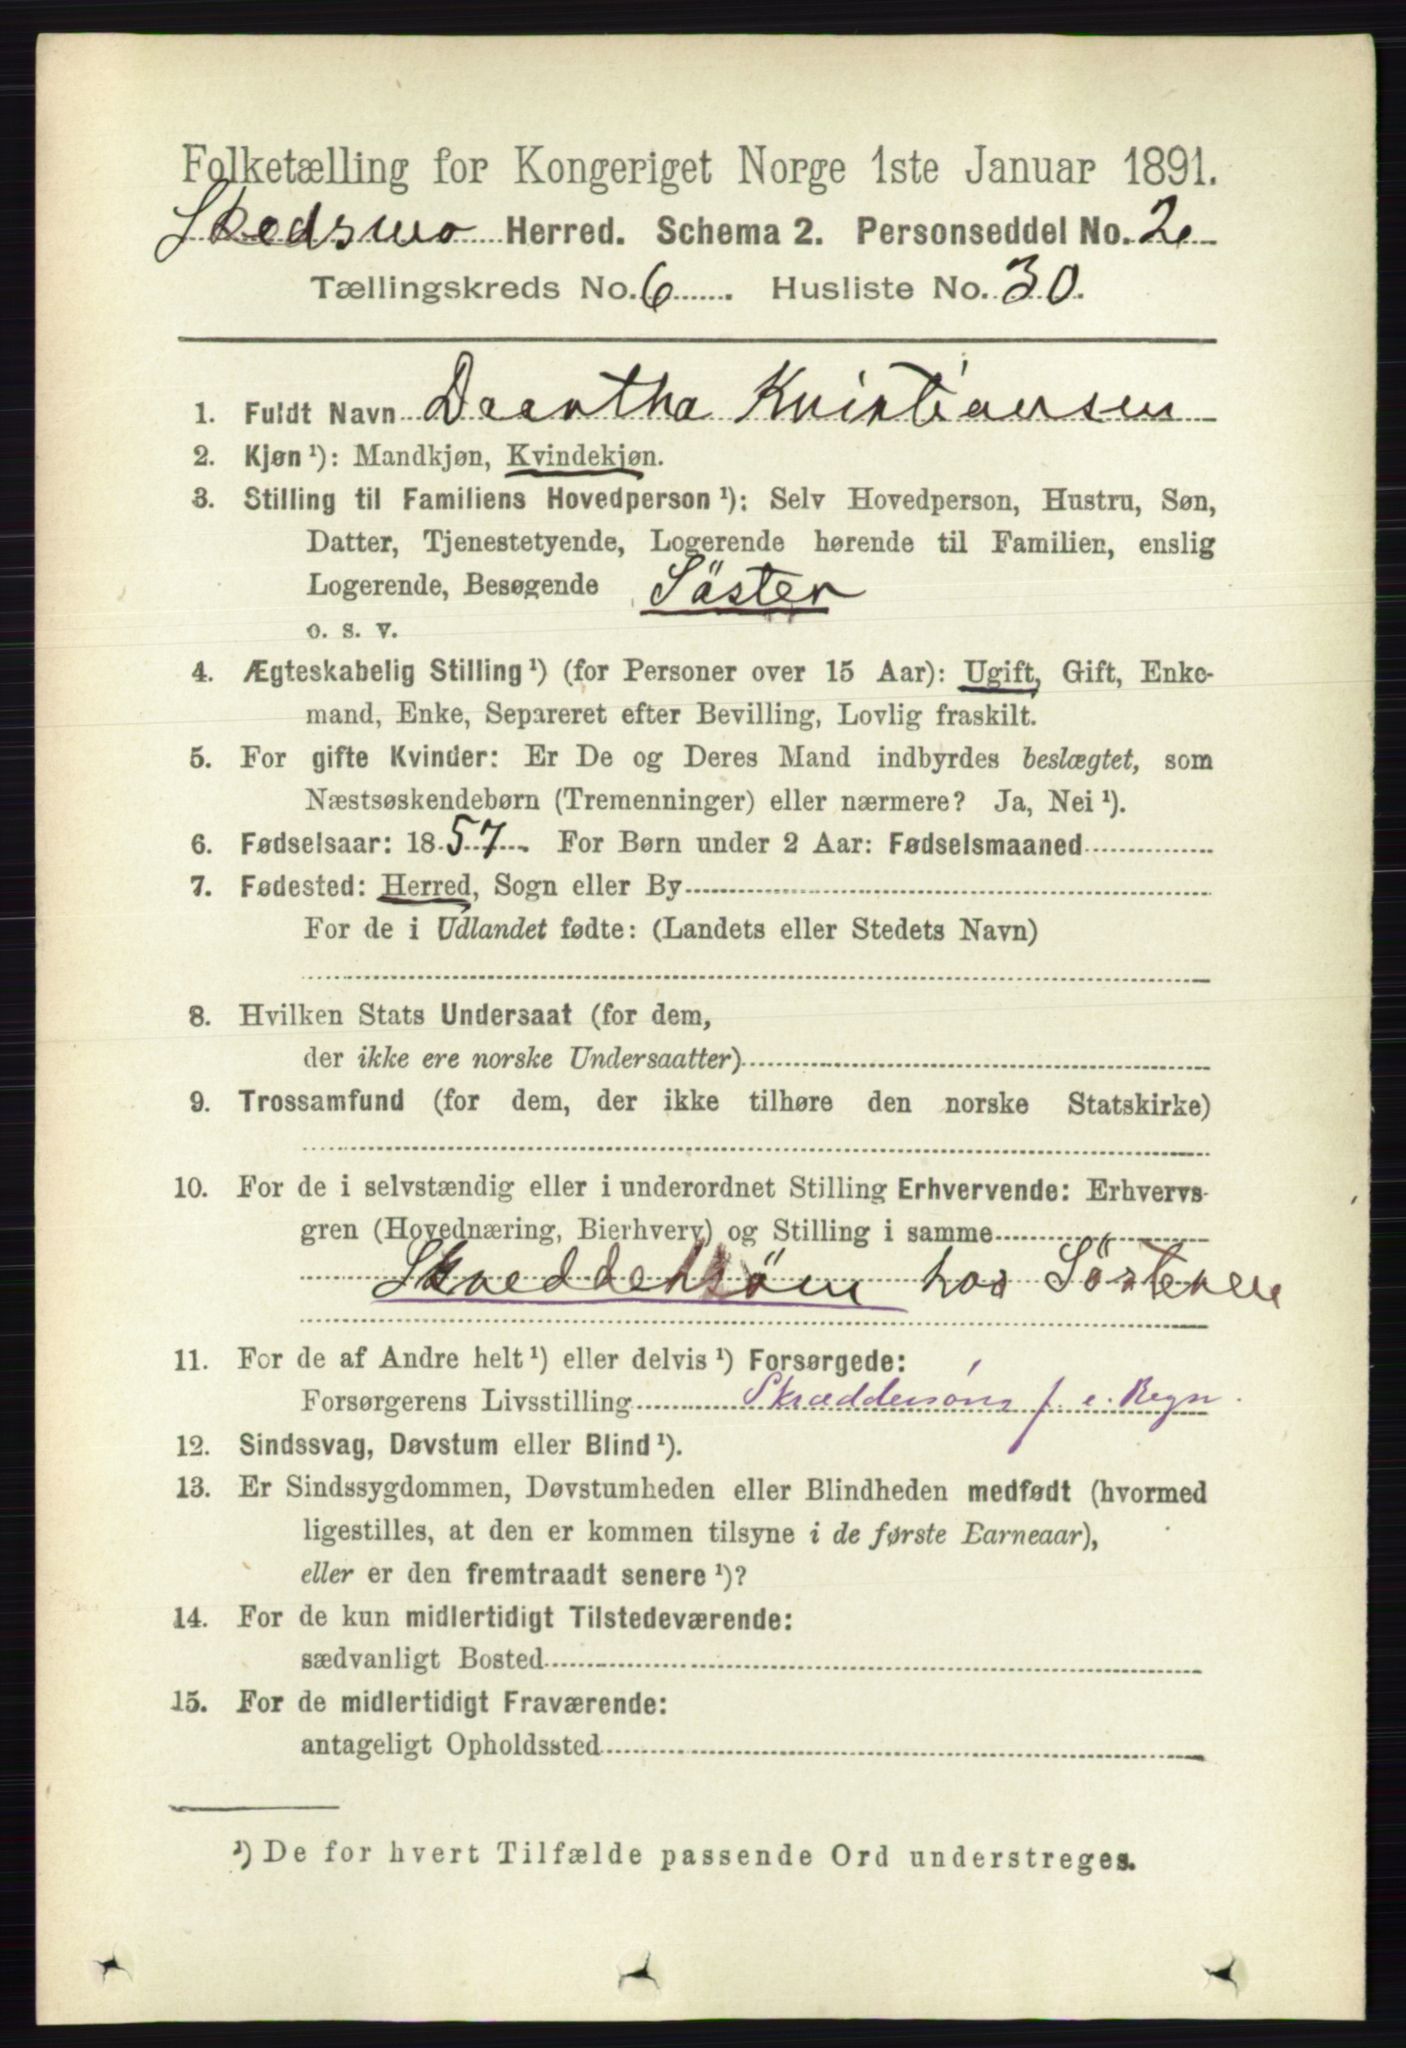 Folketælling for Kongeriget Norge 1ste Januar 1891.
Skedsmo Herred. Schema 2. Personseddel No. 2.
Tællingskreds No. 6. Husliste No. 30.
1. Fuldt Navn Daartha Kristiansen
2. Kjøn ¹): Mandkjøn, Kvindekjøn.
3. Stilling til Familiens Hovedperson ¹): Selv Hovedperson, Hustru, Søn,
Datter, Tjenestetyende, Logerende hørende til Familien, enslig
Logerende, Besøgende Söster
o. s. v.
4. Ægteskabelig Stilling ¹) (for Personer over 15 Aar): Ugift, Gift, Enke-
mand, Enke, Separeret efter Bevilling, Lovlig fraskilt.
5. For gifte Kvinder: Er De og Deres Mand indbyrdes beslægtet, som
Næstsøskendebørn (Tremenninger) eller nærmere? Ja, Nei ¹).
6. Fødselsaar: 1857. For Børn under 2 Aar: Fødselsmaaned
7. Fødested: Herred, Sogn eller By
For de i Udlandet fødte: (Landets eller Stedets Navn)
8. Hvilken Stats Undersaat (for dem,
der ikke ere norske Undersaatter)
9. Trossamfund (for dem, der ikke tilhøre den norske Statskirke)
10. For de i selvstændig eller i underordnet Stilling Erhvervende: Erhvervs-
gren (Hovednæring, Bierhverv) og Stilling i samme
Skreddersöm hos Sösteren
11. For de af Andre helt ¹) eller delvis ¹) Forsørgede:
Forsørgerens Livsstilling Skræddersöm f. e. Regn.
12. Sindssvag, Døvstum eller Blind ¹).
13. Er Sindssygdommen, Døvstumheden eller Blindheden medfødt (hvormed
ligestilles, at den er kommen tilsyne i de første Barneaar),
eller er den fremtraadt senere ¹)?
14. For de kun midlertidigt Tilstedeværende:
sædvanligt Bosted
15. For de midlertidigt Fraværende:
antageligt Opholdssted
¹) De for hvert Tilfælde passende Ord understreges.